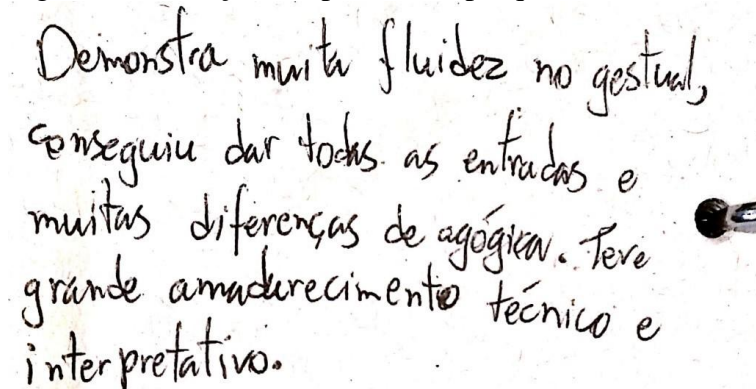 Demonstra muita fluidez no gestual,
conseguiu dar todas as entradas e
muitas diferenças de agógica. Teve
grande amadurecimento técnico e
interpretativo.